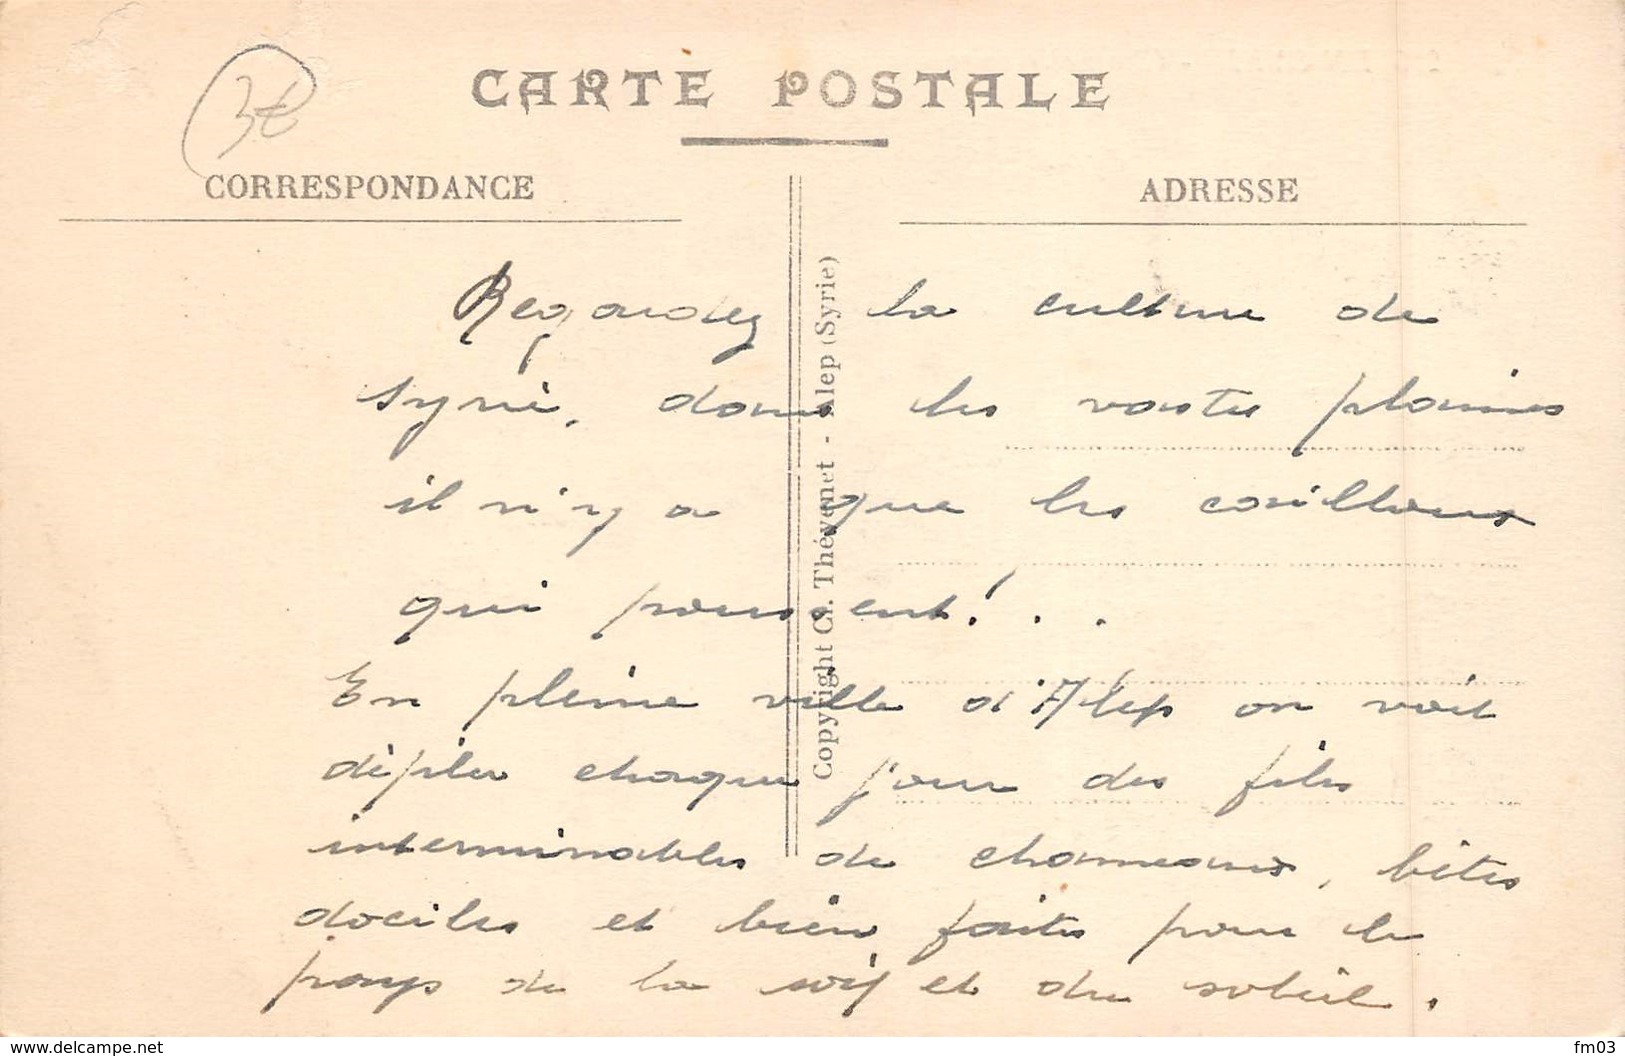 CARTE POSTALE
3€
CORRESPONDANCE
ADRESSE
Regardez la culture de
Syrie, dans les vastes plaines
il n'y a que les cailloux
qui poussent! . .
En pleine ville d'Alep on voit
défiler chaque jour des files
interminables de chameaux, bêtes
dociles et bien faites pour le
pays de la soif et du soleil.
Copyright Cl. Thévenet - Alep (Syrie)
www.delcampe.net
fm03